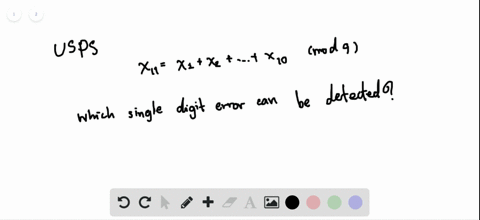 USPS
x₁₁ = x₁ + x₂ + ... + x₁₀ (mod 9)
which single digit error can be detected?
A